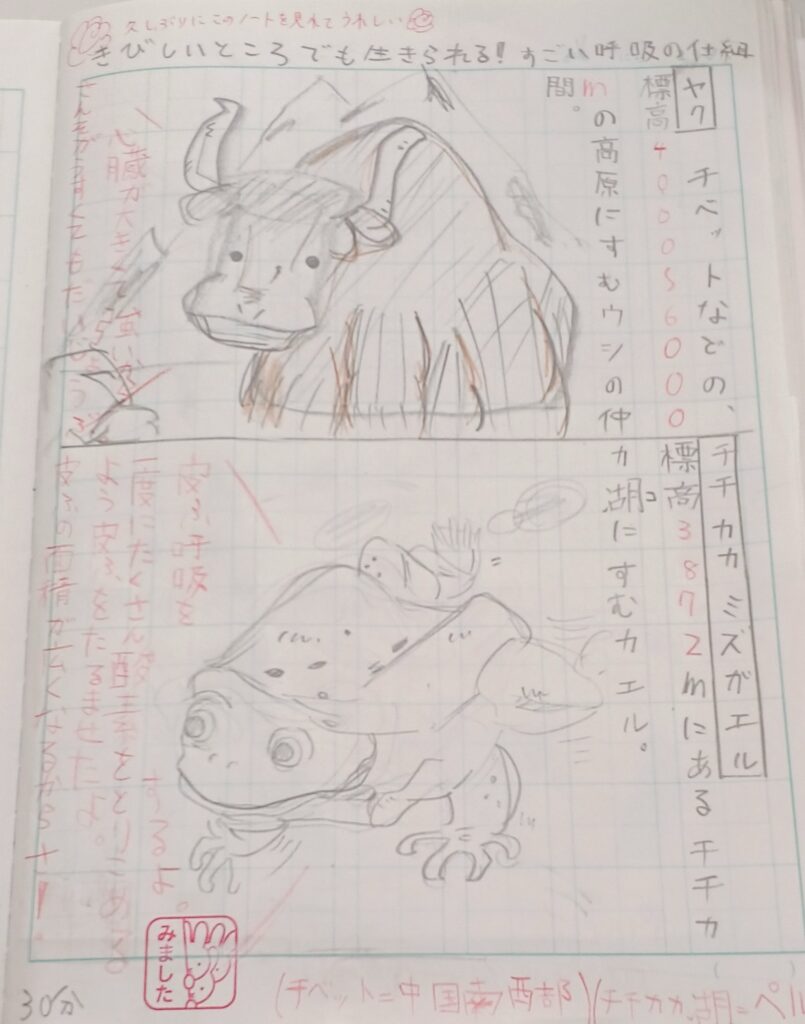 久しぶりにこのノートを見れてうれしい
きびしいところでも生きられる!すごい呼吸の仕組
ヤク チベットなどの、
標高4000〜6000
mの高原にすむウシの仲
間。
心臓が大きくて強いから
さんそがうすくてもだいじょうぶ
チチカカミズガエル
標高3872mにあるチチカ
カ湖にすむカエル。
皮ふ呼吸をするよ。
1度にたくさん酸素をとりこめる
よう皮ふをたるませたよ。
皮ふの面積が広くなるからさ!
みました
30分
(チベット=中国西部)(チチカカ湖=ペル